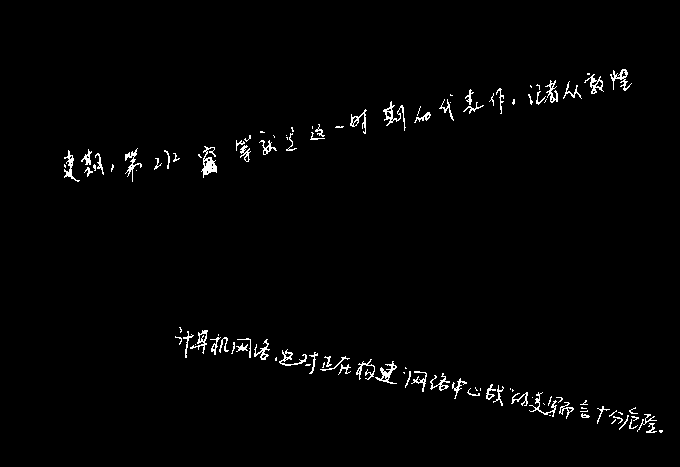 建期,第272窟等就是这一时期的代表作。记者从敦煌
计算机网络,这对正在构建“网络中心战”的美军而言十分危险。